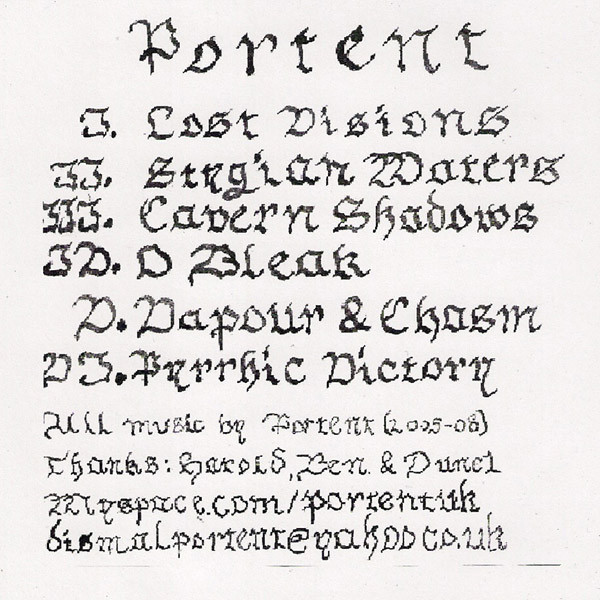 Portent
I. Lost Visions
II. Stygian Waters
III. Cavern Shadows
IV. O Bleak
V. Vapour & Chasm
VI. Pyrrhic Victory
All music by Portent (2005-08)
Thanks: Harold, Ben & Dunel
Myspace.com/portentuk
dismalportent@yahoo.co.uk